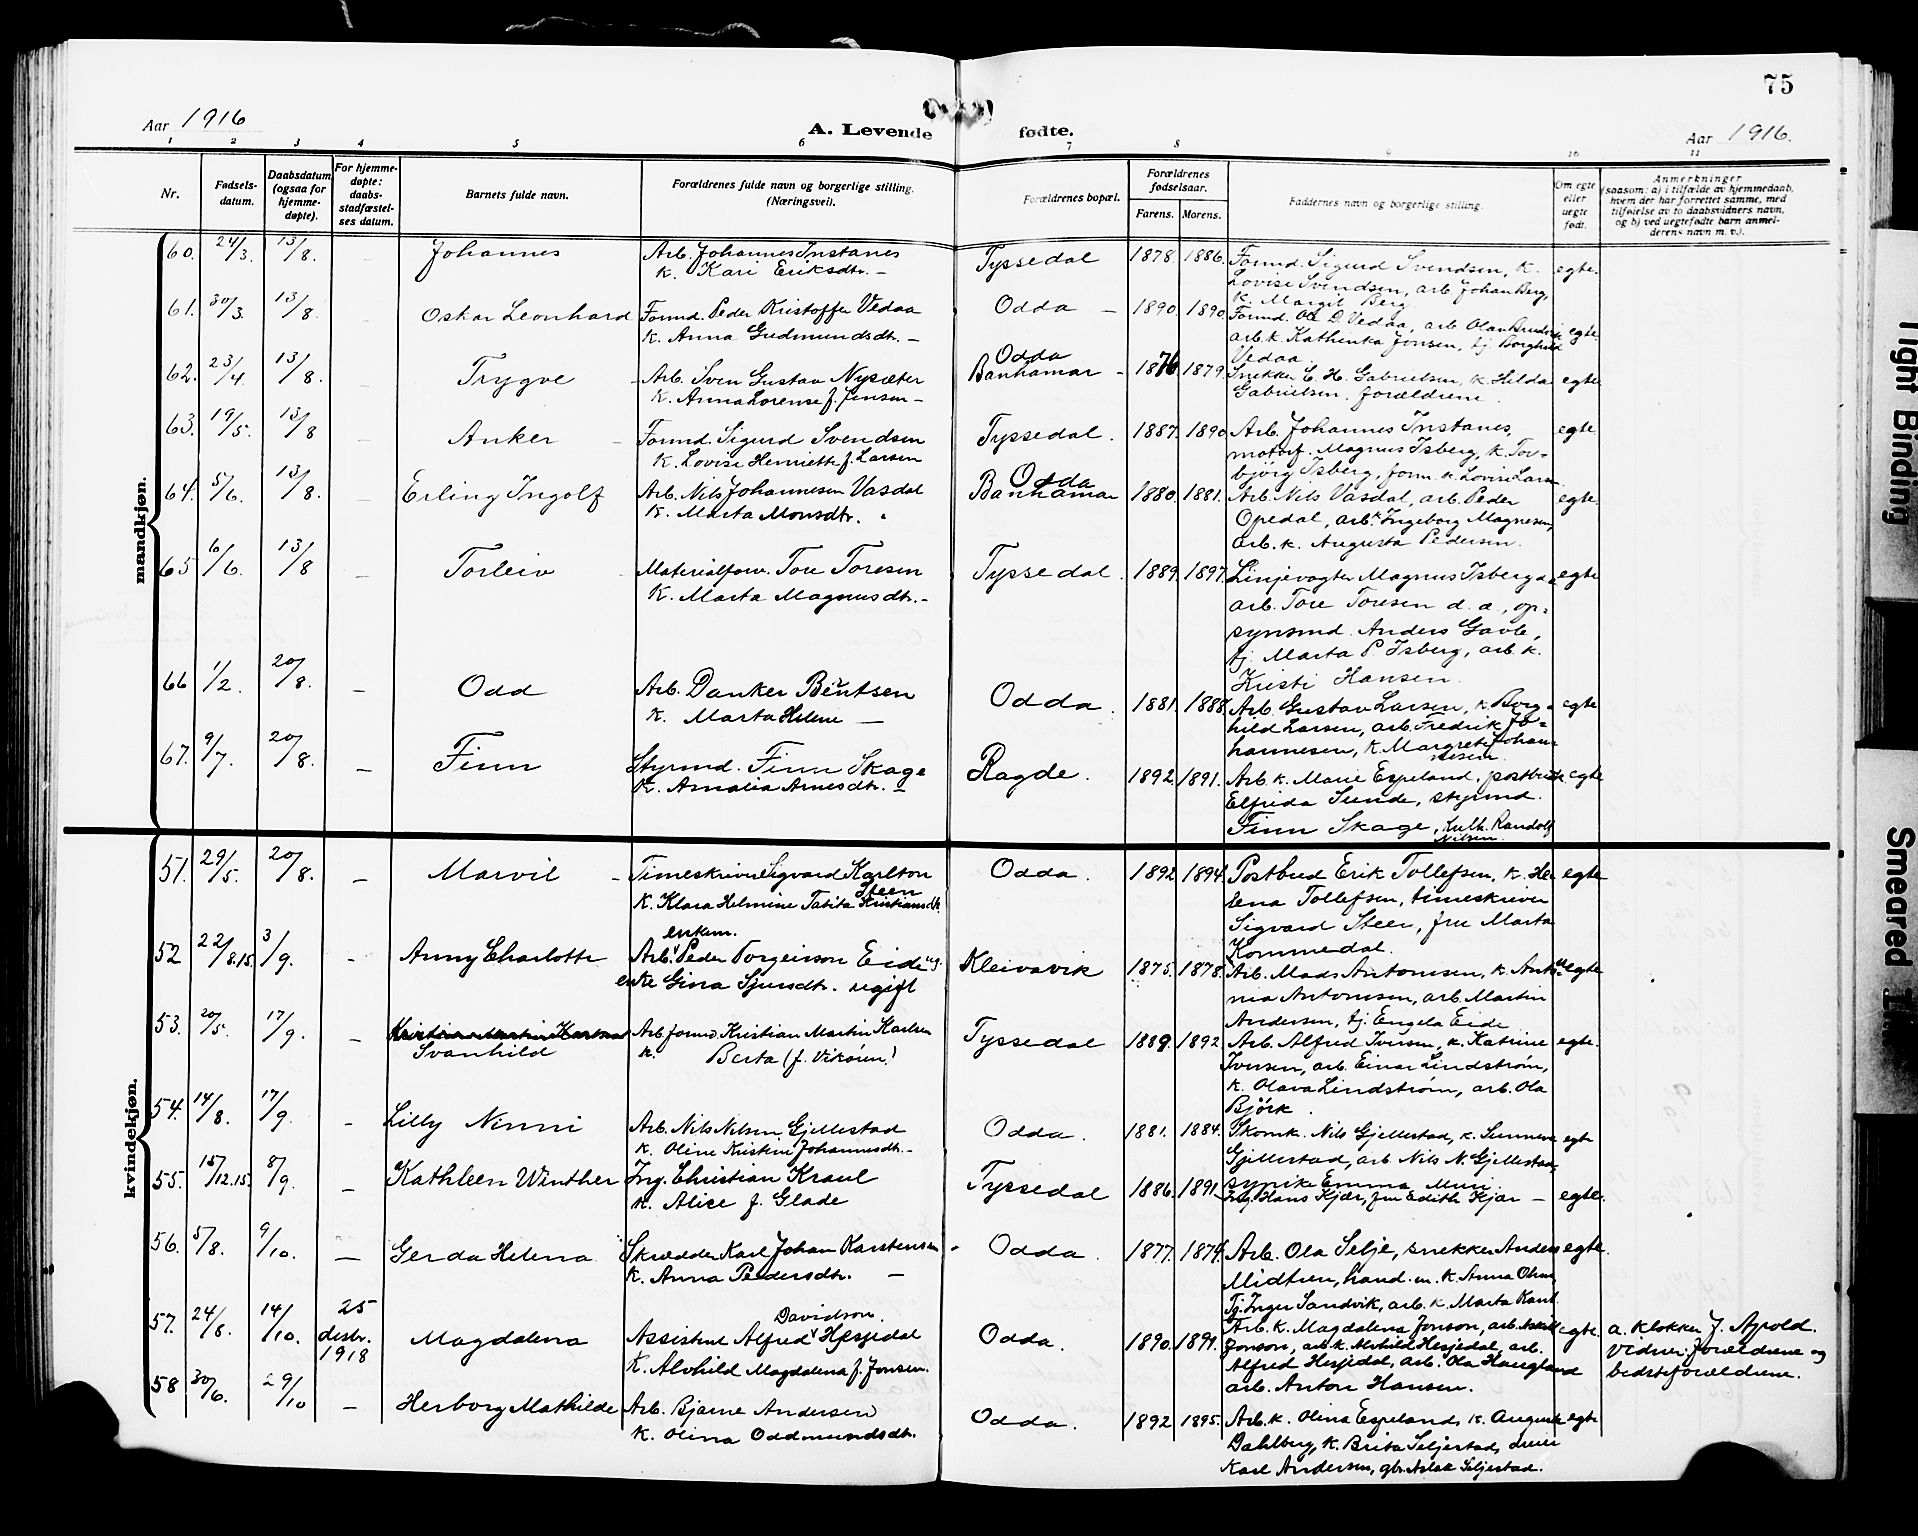 75
Aar 1916
A. Levende fødte.
Aar 1916.
1 2 3 4 5 6 7 8 9 10 11
Nr.
Fødsels-
datum.
Daabsdatum
(ogsaa for
hjemme-
døpte).
For hjemme-
døpte:
daabs-
stadfæstel-
ses datum.
Barnets fulde navn.
Forældrenes fulde navn og borgerlige stilling.
(Næringsvei).
Forældrenes bopæl.
Forældrenes
fødselsaar.
Farens. Morens.
Faddernes navn og borgerlige stilling.
Om egte
eller
uegte
født.
Anmerkninger
(saasom: a) i tilfælde av hjemmedaab,
hvem der har forrettet samme, med
tilføielse av to daabsvidners navn,
og b) ved uegtefødte barn anmel-
derens navn m. v.).
mandkjøn.
60. 24/3. 13/8. Johannes Arb. Johannes Instanes Tyssedal 1878. 1886. Formd. Sigurd Svendsen, k. egte.
k. Kari Eriksdtr. — Lovise Svendsen, arb. Johan Berg,
k. Margit Berg
61. 30/3. 13/8. Oskar Leonhard Formd. Peder Kristoffer Vedaa Odda — 1890. 1890. Formd. Ole D. Vedaa, arb. Olav egte.
k. Anna Gudmundsdtr. — arb. k. Kathinka Jonsen, tj. Borghild
Vedaa.
62. 23/4. 13/8. Trygve Arb. Sven Gustav Nysæter Odda
Banhamar — 1876 1879. Snekker C. H. Gabrielsen, k. Hilda egte
k. Anna Lorense f. Jensen — Gabrielsen, forældrene.
63. 19/5. 13/8 Anker Formd. Sigurd Svendsen Tyssedal. 1887. 1890 Arb. Johannes Instanes, egte
k. Lovise Henriette f. Larsen motorf. Magnus Isberg, k. Tor-
björg Isberg, form. k. Lovise Larsen
64. 5/6. 13/8. Erling Ingolf Arb. Nils Johannesen Vasdal Odda
Banhamar 1880. 1881. Arb. Nils Vasdal, arb. Peder egte.
k. Marta Monsdtr. Opedal, arb. k. Ingeborg Magnesen,
arb. k. Augusta Pedersen.
65 6/6. 13/8 Torleiv Materialforv. Tore Toresen Tyssedal. 1889. 1897. Linjevogter Magnus Isberg egte
k. Marta Magnusdtr. — arb. Tore Toresen d. a., op-
synsmd. Anders Gavle,
tj. Marta P. Isberg, arb. k.
Kristi Hansen.
66 1/2. 20/8. — Odd Arb. Danker Berntsen Odda. 1881. 1888. Arb. Gustav Larsen, k. Borg- egte
k. Marta Helene — hild Larsen, arb. Fredrik Jo-
hannesen, k. Margrete Johan-
nesen.
67. 9/7. 20/8. — Finn Styrmd. Finn Skage Ragde. 1892. 1891. Arb. k. Marie Espeland, postbud egte
k. Amalia Arnesdtr. — Elfrida Sunde, styrmd.
Finn Skage, Randolf
Nilsen.
kvindekjøn.
51. 29/5. 20/8. — Marvil — Timeskriver Sigvard Karlton
Steen Odda. 1892 1894. Postbud Erik Tollefsen, k. He- egte
k. Klara Helmine Tabita Kristiansdtr. lena Tollefsen, timeskriver
Sigvard Steen, fru Marta
Kommedal.
52 22/8.15. 3/9. — Anny Charlotte enkem.
Arb. Peder Torgeirson Eide og Kleivavik 1875. 1878. Arb. Mads Antonisen, k. Anto- uegte
enke Gina Sjursdtr. ugift nia Antonisen, arb. Martin
Andersen, tj. Engela Eide
53. 20/5. 17/9. — Svanhild Arb. formd. Kristian Martin Karlsen Tyssedal 1889. 1892. Arb. Alfred Iversen, k. Katrine egte.
k. Berta (f. Vikøren!) Iversen, arb. Einar Lindstrøm,
k. Olava Lindstrøm, arb. Ola
Björk.
54. 14/8. 17/9. — Lilly Ninni Arb. Nils Nilsen Gjellestad Odda. 1881. 1884. Skomk. Nils Gjellestad, k. egte
k. Oline Kristine Johannesdtr. — Gjellestad, arb. Nils N. Gjellestad,
Emma
55. 15/12.15. 8/9. — Kathleen Winther Ing. Christian Kraul Tyssedal 1886. 1891 Ing. Hans Kjær, fru Edith Kjær — egte.
k. Alice f. Glade
56. 5/8. 9/10. — Gerda Helena Skrædder Karl Johan Karstensen Odda. 1877. 1874. Arb. Ola Selje, snekker Anders egte.
k. Anna Pedersdtr. — k. Anna
Tj. Inger Sandvik, arb. k. Marta
57. 24/8. 14/10. 25
desbr.
1918 Magdalena Davidson.
Assistent Alfred Hesjedal Odda. 1890. 1891. Arb. k. Magdalena Jonson, arb. egte. a. klokker J. Apold.
k. Alvhild Magdalena f. Jonsen. Jonson, arb. k. Alvhild Hesjedal, arb. vidner: forældrene og
Alfred Hesjedal, arb. Ola Haugland bedsteforældrene.
arb. Anton Hansen.
58 30/6. 29/10 — Herborg Mathilde Arb. Bjarne Andersen Odda. 1892 1895. Arb. k. Olina Espeland, k. Augusta egte
k. Olina Oddmundsdtr. Dahlberg, k. Brita Seljestad, dreier
Karl Andersen, gbr. Aslak Seljestad.
Tight Binding
Smeared